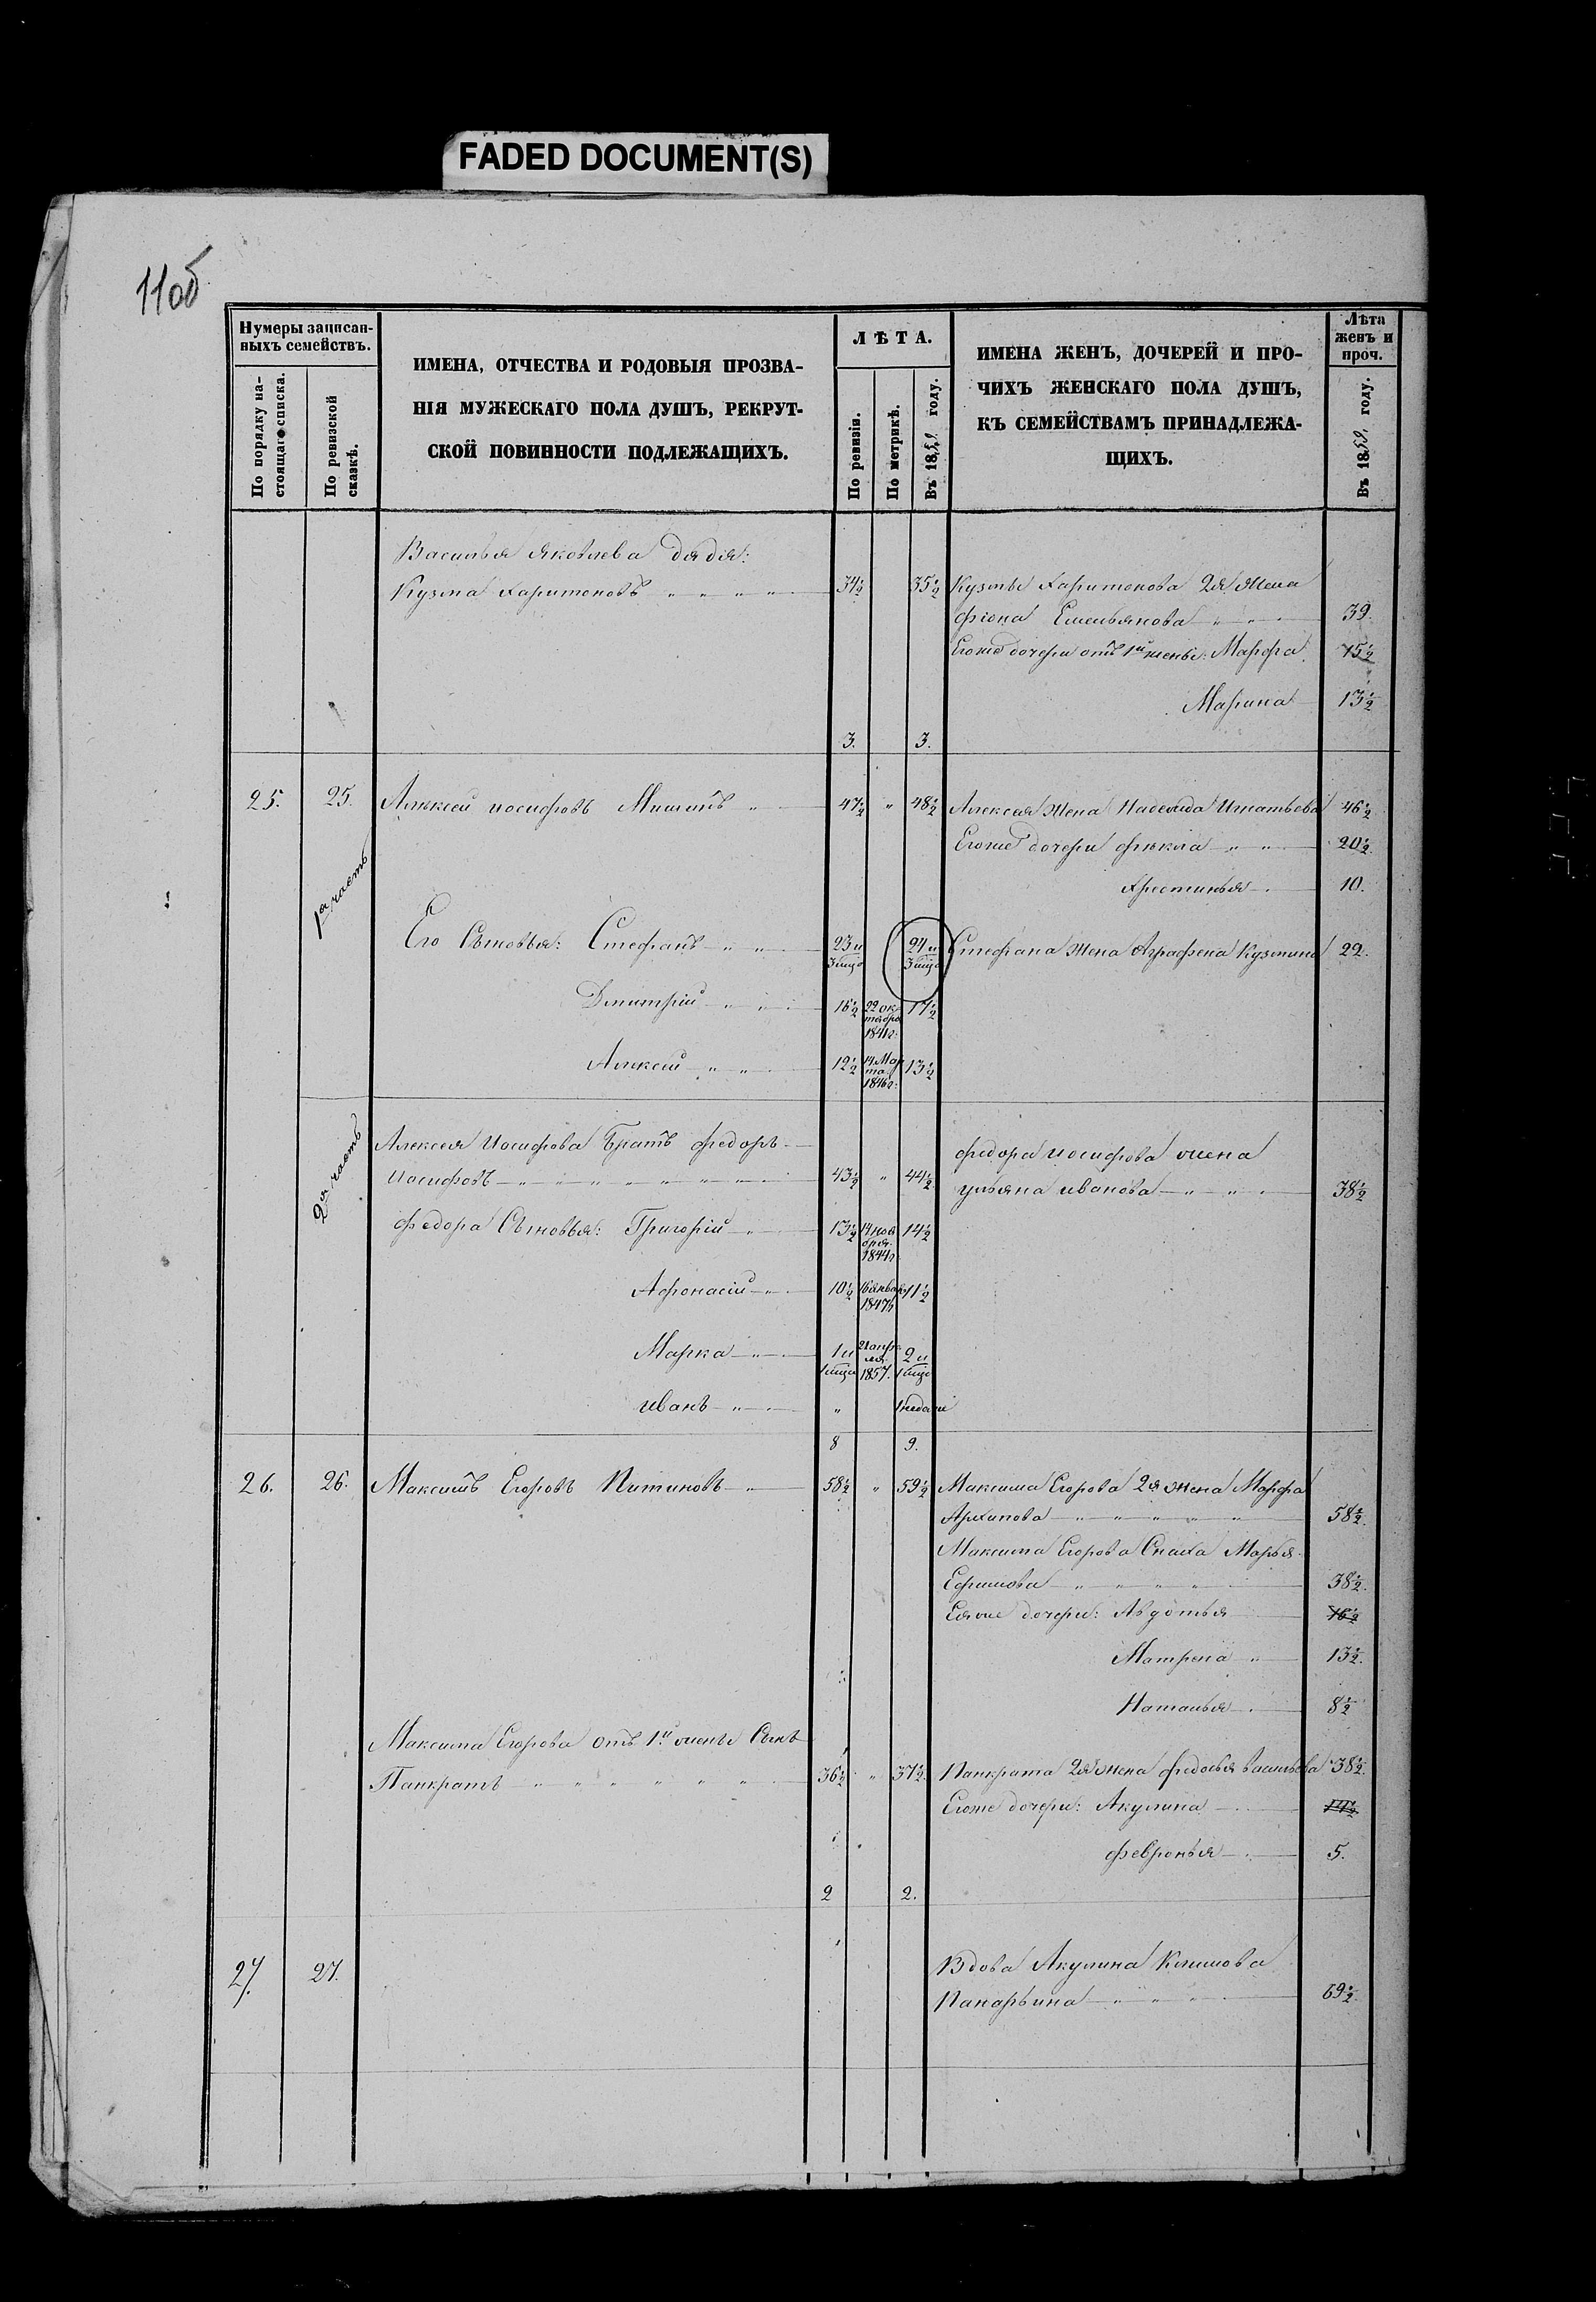 FADED DOCUMENT(S)
11об
Нумеры записан-
ныхъ семействъ.
По порядку на-
стоящаго списка.
По ревизской
сказкѣ.
ИМЕНА, ОТЧЕСТВА И РОДОВЫЯ ПРОЗВА-
НІЯ МУЖЕСКАГО ПОЛА ДУШЪ, РЕКРУТ-
СКОЙ ПОВИННОСТИ ПОДЛЕЖАЩИХЪ.
ЛѢТА.
По ревизіи.
По метрикѣ.
Въ 1859 году.
ИМЕНА ЖЕНЪ, ДОЧЕРЕЙ И ПРО-
ЧИХЪ ЖЕНСКАГО ПОЛА ДУШЪ,
КЪ СЕМЕЙСТВАМЪ ПРИНАДЛЕЖА-
ЩИХЪ.
Лѣта
женъ и
проч.
Въ 1859 году.
Василья Яковлева дядя:
Кузма Харитоновъ 34½ 35½ Кузмы Харитонова 2я жена
Фіона Емельянова 39.
Егоже дочери отъ 1й жены: Марфа 15½
Марина 13½
3. 3.
25. 25. Алексей Иосифовъ 47½ " 48½ Алексея жена Надежда Игнатьева 46½
Егоже дочери Фекла 20½
1я часть Христинья 10.
Его Сыновья: Стефанъ 23 и 3 мца 24 и 3 мца Стефана жена Аграфена Кузмина 22.
Дмитрій 16½ 22 октября 1841г: 17½
Алексей 12½ 14 Марта 1846г: 13½
2я часть Алексея Иосифова братъ Федоръ
Иосифовъ 43½ " 44½ Федора Иосифова жена
Ульяна Иванова 38½
Федора Сыновья: Григорій 13½ 14 ноября 1844г 14½
Афонасій 10½ 16 январ 1847г 11½
Марка 1 и 1 мца 21 апреля 1857. 2 и 1 мца
Иванъ " 1 недели
8 9.
26. 26. Максимъ Егоровъ Питиновъ 58½ " 59½ Максима Егорова 2я жена Марфа
Архипова 58½.
Максима Егорова Сноха Марья
Ефимова 38½.
Еяже дочери: Авдотья 16½
Матрена 13½.
Наталья 8½
Максима Егорова отъ 1й жены Сынъ
Панкратъ 36½ " 37½. Панкрата 2я жена Федосья Васильева 38½.
Егоже дочери: Акулина
Февронья 5.
2 2.
27. 27. Вдова Акулина Климова
Панарьина 69½